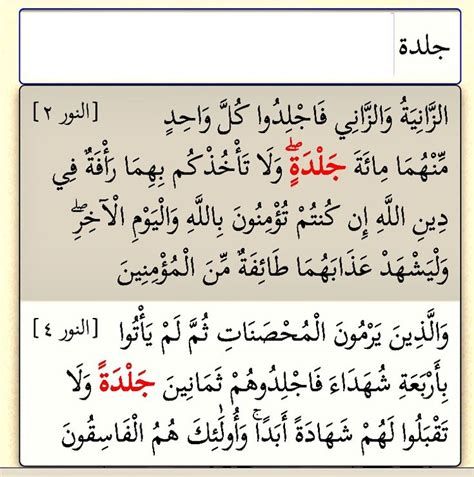 جلدة
الزَّانِيَةُ وَالزَّانِي فَاجْلِدُوا كُلَّ وَاحِدٍ [النور ٢]
مِّنْهُمَا مِائَةَ جَلْدَةٍ ۖ وَلَا تَأْخُذْكُم بِهِمَا رَأْفَةٌ فِي
دِينِ اللَّهِ إِن كُنتُمْ تُؤْمِنُونَ بِاللَّهِ وَالْيَوْمِ الْآخِرِ ۖ
وَلْيَشْهَدْ عَذَابَهُمَا طَائِفَةٌ مِّنَ الْمُؤْمِنِينَ
وَالَّذِينَ يَرْمُونَ الْمُحْصَنَاتِ ثُمَّ لَمْ يَأْتُوا [النور ٤]
بِأَرْبَعَةِ شُهَدَاءَ فَاجْلِدُوهُمْ ثَمَانِينَ جَلْدَةً وَلَا
تَقْبَلُوا لَهُمْ شَهَادَةً أَبَدًا ۚ وَأُولَٰئِكَ هُمُ الْفَاسِقُونَ